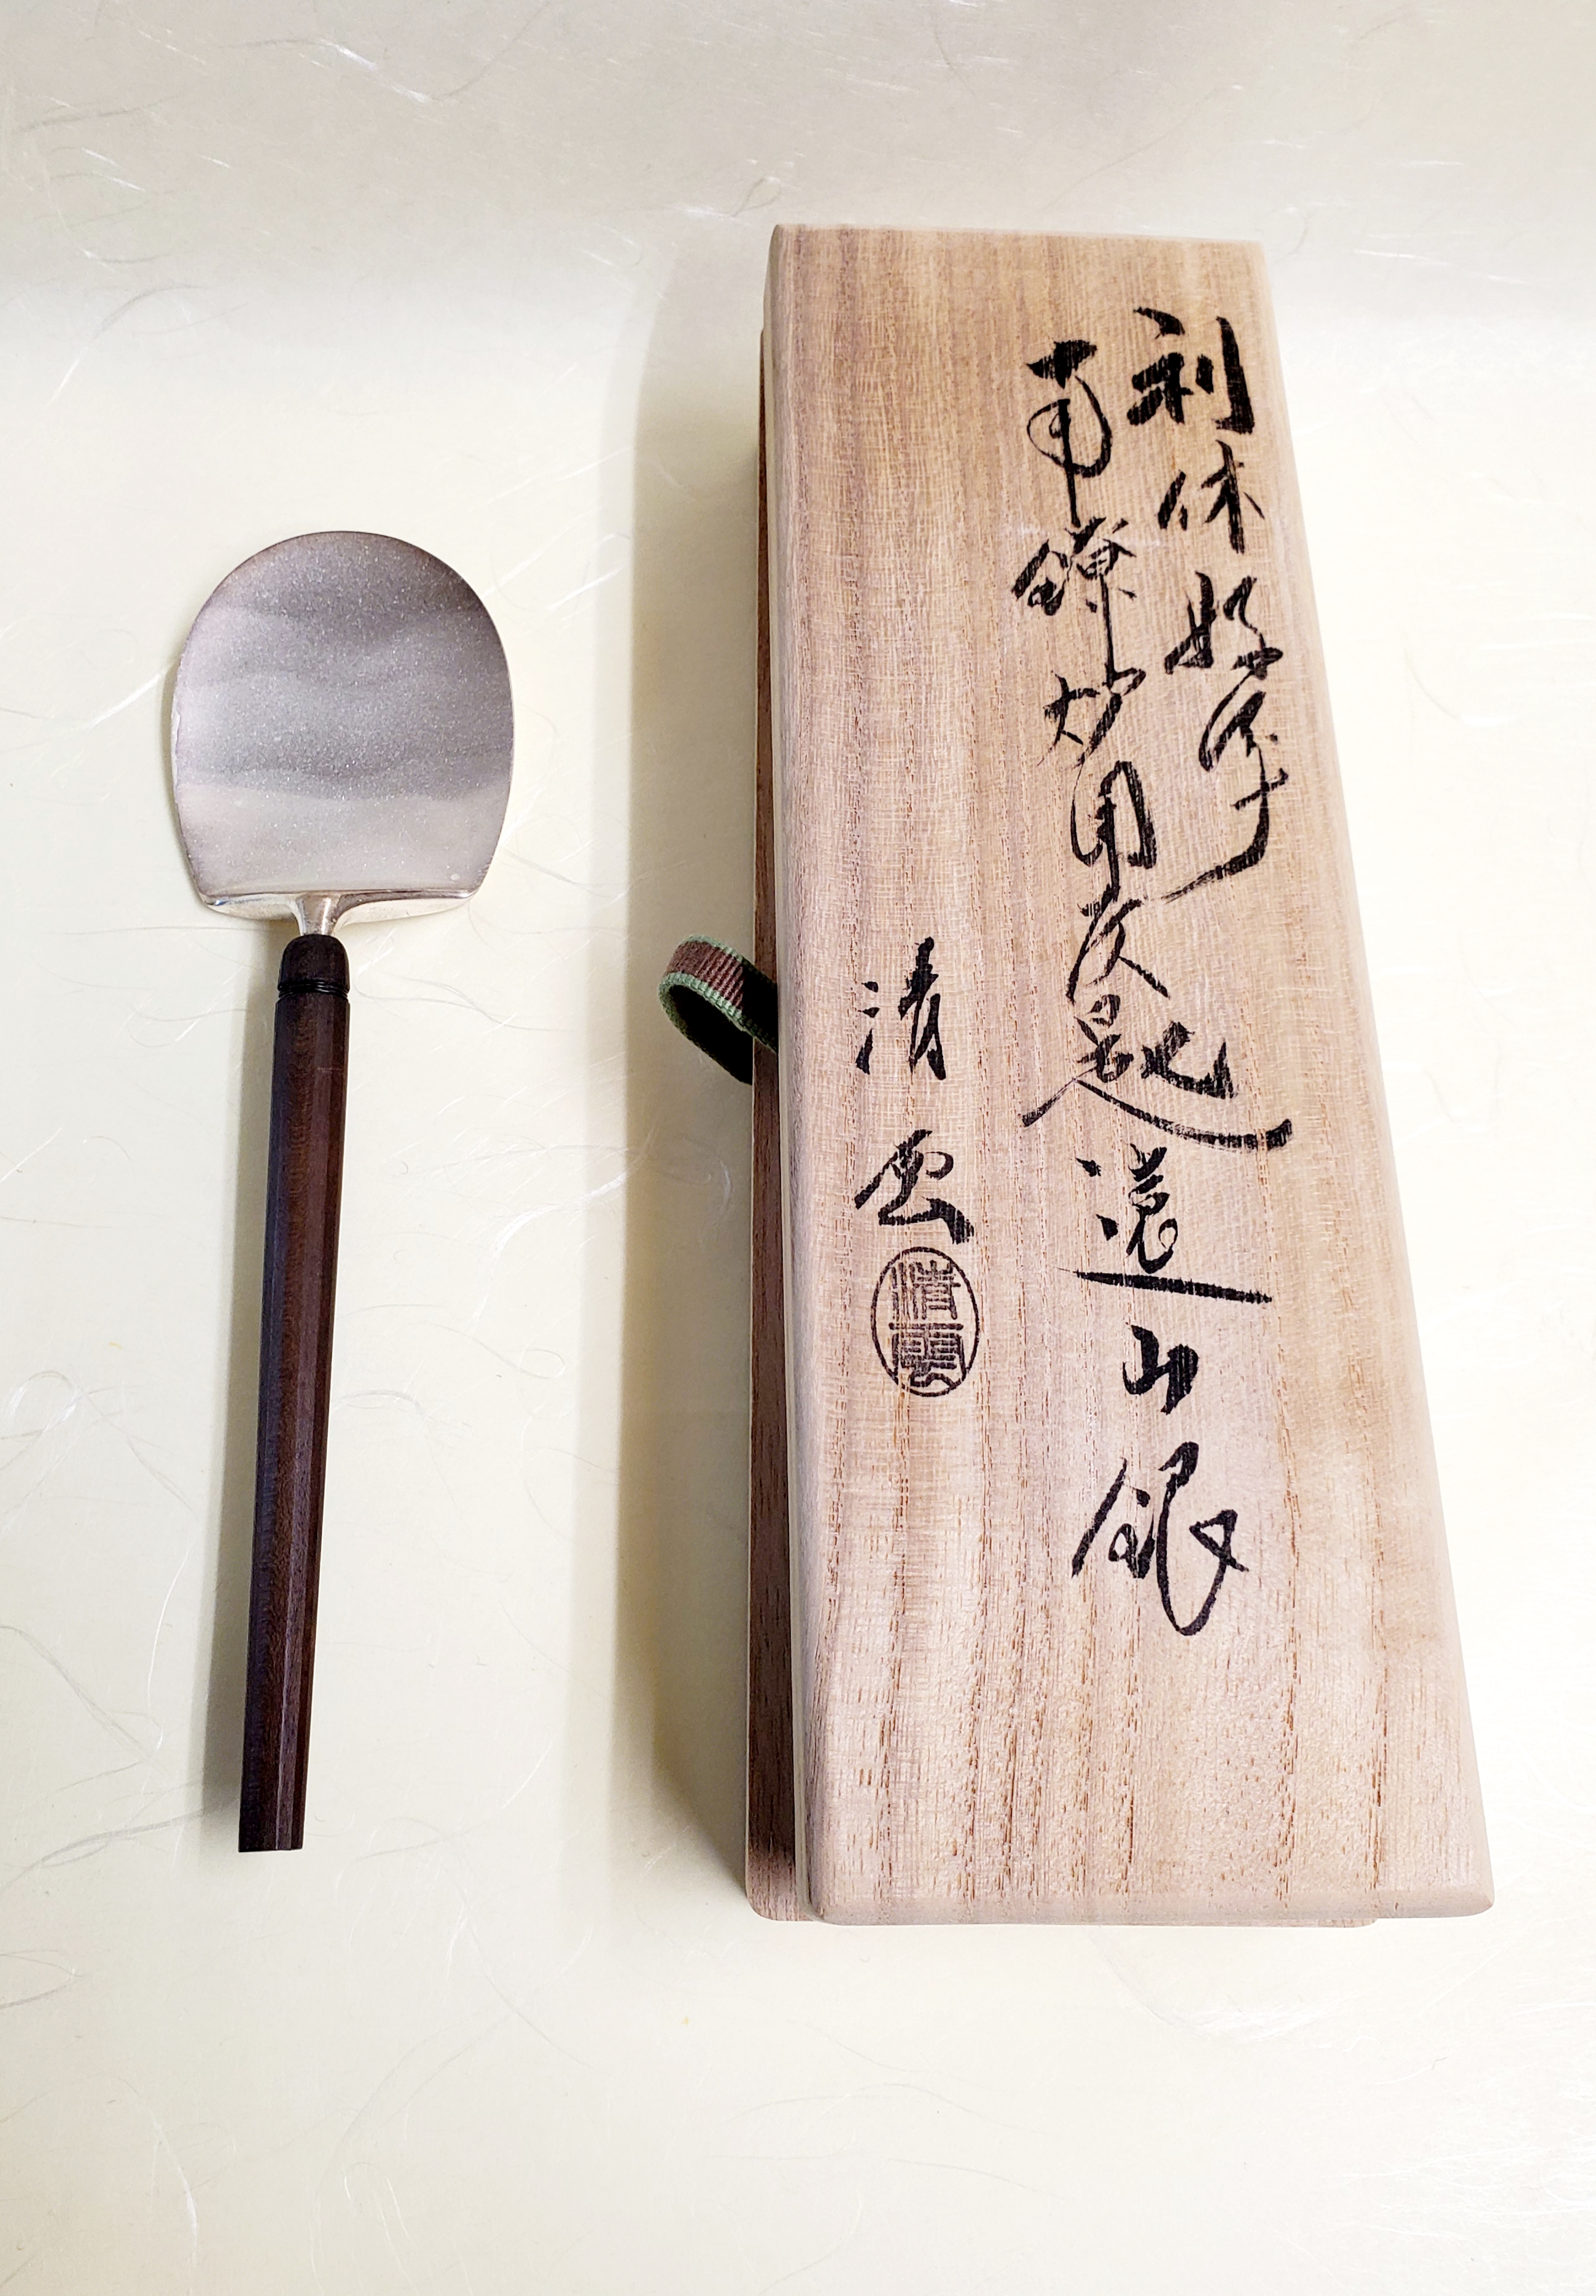 利休好写
南鐐炉用灰匙遠山銀
清雲
清雲